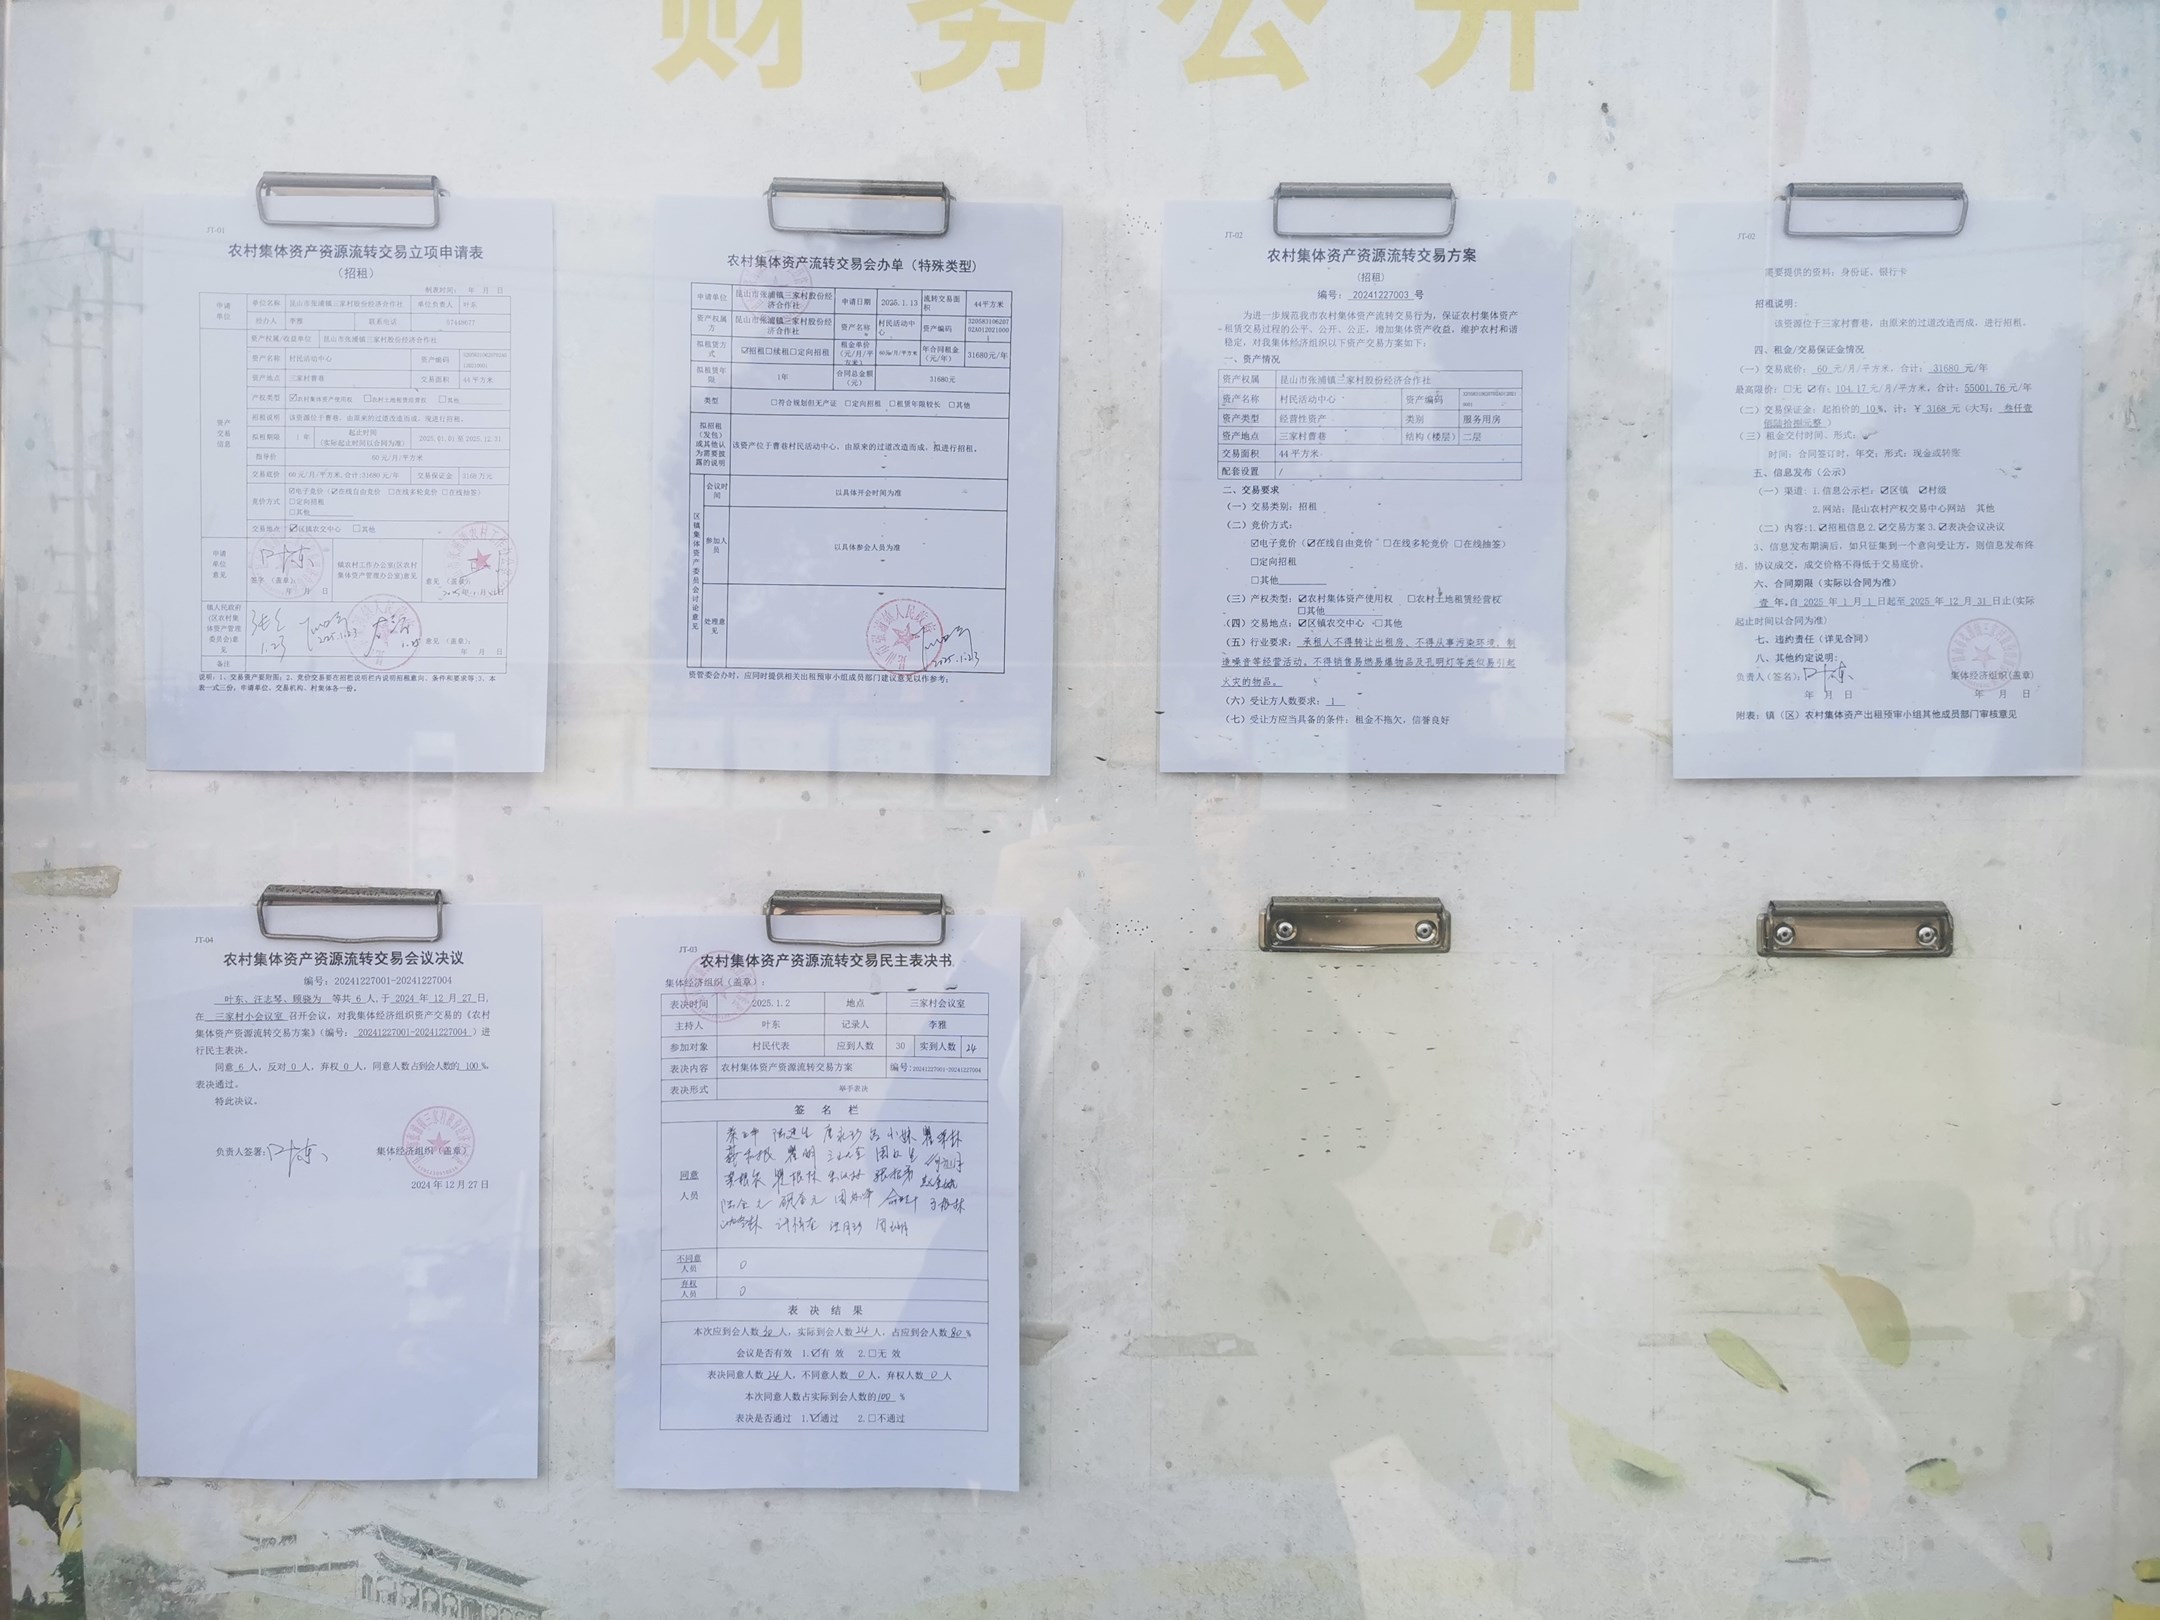 财务公开
JT-01
农村集体资产资源流转交易立项申请表
（招租）
制表时间： 年 月 日
申请单位 单位名称 昆山市张浦镇三家村股份经济合作社 单位负责人 叶东
经办人 李雅 联系电话 57448677
资产交易信息 资产权属/收益单位 昆山市张浦镇三家村股份经济合作社
资产名称 村民活动中心 资产编码
资产地点 三家村曹巷 交易面积 44平方米
产权类型 ☑农村集体资产使用权 □农村土地租赁经营权 □其他
招租说明 该资源位于曹巷，由原来的过道改造而成，现进行招租。
拟租期限 1年 起止时间（实际起止时间以合同为准） 2025.01.01至2025.12.31
指导价 60元/月/平方米
交易底价 60元/月/平方米,合计:31680元/年 交易保证金 3168万元
竞价方式 ☑电子竞价（☑在线自由竞价 □在线多轮竞价 □在线抽签）
□定向招租
□其他
交易地点 ☑区镇农交中心 □其他
申请单位意见 叶东 签字（盖章） 年 月 日 镇农村工作办公室(区农村集体资产管理办公室)意见 意见（盖章）
镇人民政府(区农村集体资产管理委员会)意见 1.23 2025.1.23 意见（盖章）： 年 月 日
备注
说明：1、交易资产要附图；2、竞价交易要在招租说明栏内说明招租意向、条件和要求等；3、本
表一式三份，申请单位、交易机构、村集体各一份。
农村集体资产流转交易会办单（特殊类型）
申请单位 昆山市张浦镇三家村股份经济合作社 申请日期 2025.1.13 流转交易面积 44平方米
资产权属方 昆山市张浦镇三家村股份经济合作社 资产名称 村民活动中心 资产编码
拟租赁方式 ☑招租□续租□定向招租 租金单价（元/月/平方米） 60元/月/平方米 年合同租金（元/年） 31680元/年
拟租赁年限 1年 合同总金额（元） 31680元
类型 □符合规划但无产证 □定向招租 □租赁年限较长 □其他
拟招租（发包）或其他认为需要披露的说明 该资产位于曹巷村民活动中心，由原来的过道改造而成，拟进行招租。
区镇集体资产委员会讨论意见 会议时间 以具体开会时间为准
参加人员 以具体参会人员为准
处理意见 2025.1.23
资管委会办时，应同时提供相关出租预审小组成员部门建议意见以作参考；
JT-02
农村集体资产资源流转交易方案
（招租）
编号：20241227003 号
为进一步规范我市农村集体资产流转交易行为，保证农村集体资产
租赁交易过程的公平、公开、公正，增加集体资产收益，维护农村和谐
稳定，对我集体经济组织以下资产交易方案如下：
一、资产情况
资产权属 昆山市张浦镇三家村股份经济合作社
资产名称 村民活动中心 资产编码
资产类型 经营性资产 类别 服务用房
资产地点 三家村曹巷 结构（楼层） 二层
交易面积 44平方米
配套设置 /
二、交易要求
（一）交易类别：招租
（二）竞价方式：
☑电子竞价（☑在线自由竞价 □在线多轮竞价 □在线抽签）
□定向招租
□其他
（三）产权类型：☑农村集体资产使用权 □农村土地租赁经营权
□其他
（四）交易地点：☑区镇农交中心 □其他
（五）行业要求：承租人不得转让出租房、不得从事污染环境、制
造噪音等经营活动。不得销售易燃易爆物品及孔明灯等类似易引起
火灾的物品。
（六）受让方人数要求：1
（七）受让方应当具备的条件：租金不拖欠，信誉良好
JT-02
需要提供的资料：身份证、银行卡
招租说明：
该资源位于三家村曹巷，由原来的过道改造而成，进行招租。
四、租金/交易保证金情况
（一）交易底价：60 元/月/平方米，合计：31680 元/年
最高限价：□无 ☑有：104.17 元/月/平方米，合计：55001.76 元/年
（二）交易保证金：起拍价的 10 %，计：￥ 3168 元（大写：叁仟壹
佰陆拾捌元整 ）
（三）租金交付时间、形式：
时间：合同签订时，年交；形式：现金或转账
五、信息发布（公示）
（一）渠道：1.信息公示栏：☑区镇 ☑村级
2.网站：昆山农村产权交易中心网站 其他
（二）内容:1.☑招租信息 2.☑交易方案 3.☑表决会议决议
3、信息发布期满后，如只征集到一个意向受让方，则信息发布终
结，协议成交，成交价格不得低于交易底价。
六、合同期限（实际以合同为准）
壹 年，自 2025 年 1 月 1 日起至 2025 年 12 月 31 日止(实际
起止时间以合同为准）
七、违约责任（详见合同）
八、其他约定说明：
负责人（签名）：叶东 集体经济组织(盖章)
年 月 日 年 月 日
附表：镇（区）农村集体资产出租预审小组其他成员部门审核意见
JT-04
农村集体资产资源流转交易会议决议
编号：20241227001-20241227004
叶东、汪志琴、顾晓为 等共 6 人,于 2024 年 12 月 27 日,
在 三家村小会议室 召开会议，对我集体经济组织资产交易的《农村
集体资产资源流转交易方案》（编号：20241227001-20241227004）进
行民主表决。
同意 6 人，反对 0 人，弃权 0 人，同意人数占到会人数的 100 %。
表决通过。
特此决议。
负责人签署：叶东 集体经济组织（盖章）
2024年12月27日
JT-03
农村集体资产资源流转交易民主表决书
集体经济组织（盖章）：
表决时间 2025.1.2 地点 三家村会议室
主持人 叶东 记录人 李雅
参加对象 村民代表 应到人数 30 实到人数 24
表决内容 农村集体资产资源流转交易方案 编号:20241227001-20241227004
表决形式 举手表决
签 名 栏
同意人员
不同意人员 0
弃权人员 0
表 决 结 果
本次应到会人数 30 人，实际到会人数 24 人，占应到会人数 80 %
会议是否有效 1.☑有 效 2.□无 效
表决同意人数 24 人，不同意人数 0 人，弃权人数 0 人
本次同意人数占实际到会人数的 100 %
表决是否通过 1.☑通过 2.□不通过